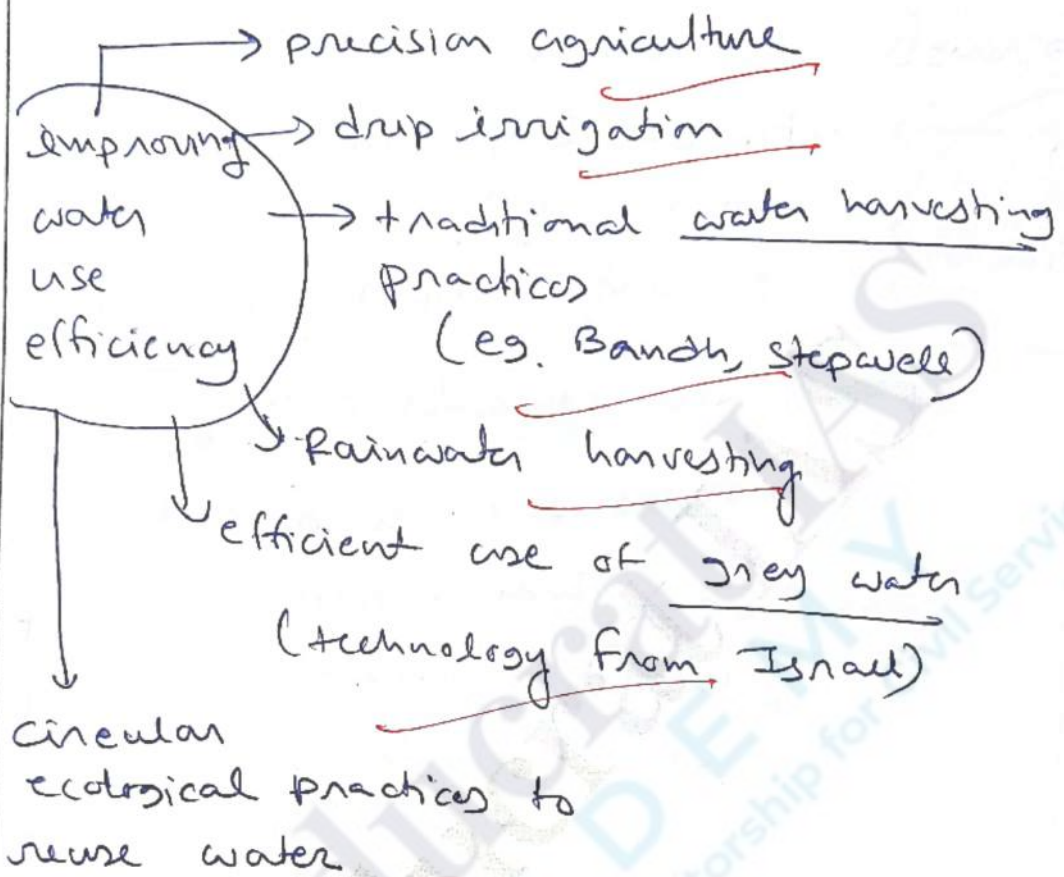 precision agriculture
improving
water
use
efficiency
drip irrigation
traditional water harvesting
practices
(eg. Bandh, stepwell)
Rainwater harvesting
efficient use of grey water
(technology from Israel)
circular
ecological practices to
reuse water